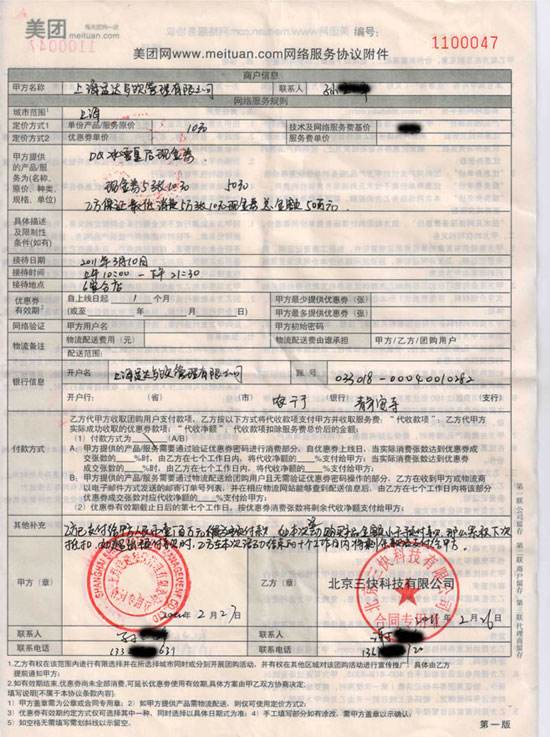 美团
每天团购一次
编号:
1100047
1100047
美团网www.meituan.com网络服务协议附件
商户信息
甲方名称 上海 管理有限公司 联系人
网络服务规则
城市范围 上海
定价方式1 单份产品/服务原价 10元 技术及网络服务费基价
定价方式2 优惠券单价 服务费单价
甲方提供的产品/服务为(名称、原价、种类、规格、单位)
DQ冰雪皇后现金券
现金券5张10元 50元
乙方保证最低消费5万张10元现金券 总金额50万元.
具体描述及限制性条件(如有)
接待日期 2011年3月10日
接待时间 上午10:00-下午21:30
接待地点
优惠券有效期 自上线日起 1 个月 甲方最少提供优惠券(张)
(或至 年 月 日) 甲方最多提供优惠券(张)
网络验证 甲方用户名 甲方初始密码
物流备注 物流配送费用(元) 物流配送费由谁承担 甲方/乙方/团购用户
配送范围:
银行信息 开户名 上海 管理有限公司 账号 033018-00040010282
开户行: (省) (市) 银行 静安寺
付款方式
乙方代甲方收取团购用户支付款项,乙方按以下方式将代收款项支付甲方并收取服务费:“代收款项”:乙方代甲方
实际成功收取的优惠券总价款;“代收净额”:代收款项扣除服务费总价后的金额;
(1) 付款方式为 (A/B)
A: 甲方提供的产品/服务需要通过验证优惠券密码进行消费部分,自优惠券上线日,当实际消费张数达到优惠券成
交张数的 %时,由乙方在七个工作日内,将代收净额的 %支付给甲方;当实际消费张数达到优惠券
成交张数的 %时,由乙方在七个工作日内,将代收净额的 %支付给甲方;
B: 甲方提供的产品/服务需要通过物流配送给团购用户且无需验证优惠券密码操作的部分,乙方在收到甲方或物流商
以电子邮件方式发送的邮寄订单号列表,并在相应物流网站能够查到配送信息后,由乙方在七个工作日内将该部分
优惠券成交张数对应代收净额的 %支付给甲方;
(2) 优惠券有效期截止日后的第七个工作日内,按优惠券消费张数将剩余代收净额支付给甲方。
其他补充
甲方(章) 乙方(章)
北京三快科技有限公司
北京三快科技有限公司
合同专用章
2月27 2月26
联系人 联系人
联系电话 联系电话
1.乙方有权在该范围内进行有限选择并在所选城市同时或分别开展团购活动,并有权在其他区域对该团购活动进行宣传推广,具体由乙方
提前通知甲方;
2.如有效期结束,优惠券尚未全部消费,可延长优惠券使用有效期,具体方案由甲乙双方协商决定.
填写说明(不属于本协议条款内容):
1) 甲方盖章需为公章或合同专用章; 2) 如甲方提供产品需物流配送,则仅可使用定价方式2;
3) 优惠券有效期约定方式仅可选择其中一种,同时选择以具体日期式为准; 4) 手工填写部分如有涂改,需甲方盖章以示确认;
5) 如空格无需填写需划斜线以示留空.
第一版
第一联 公司留存 第二联 商户留存 第三联 代理商留存